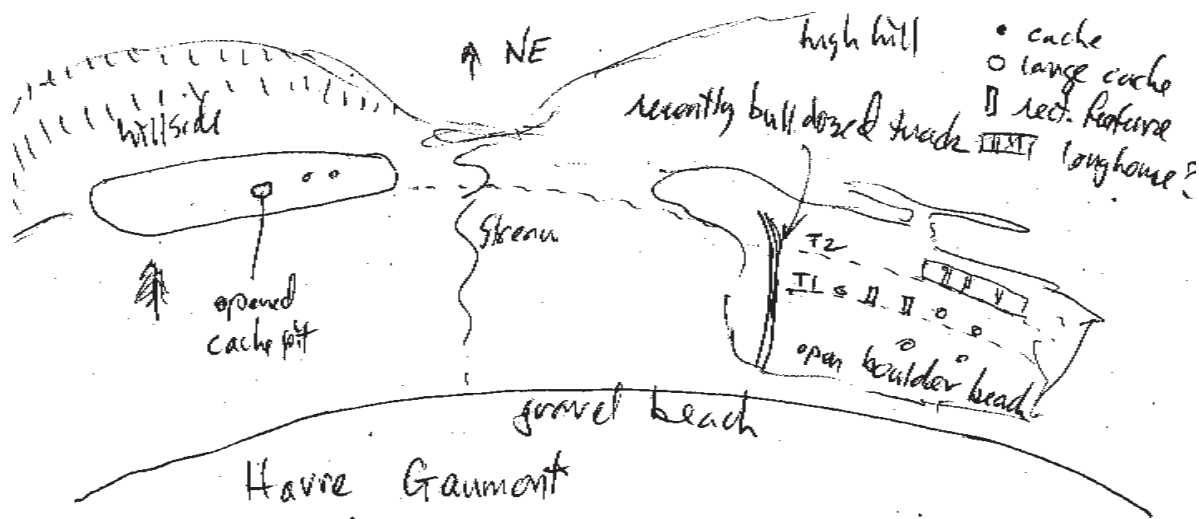 high hill
NE
cache
large cache
rect. feature
longhouse?
recently bulldozed track
hillside
Stream
T2
T1
opened
cache pit
open boulder beach
gravel beach
Havre Gaumont